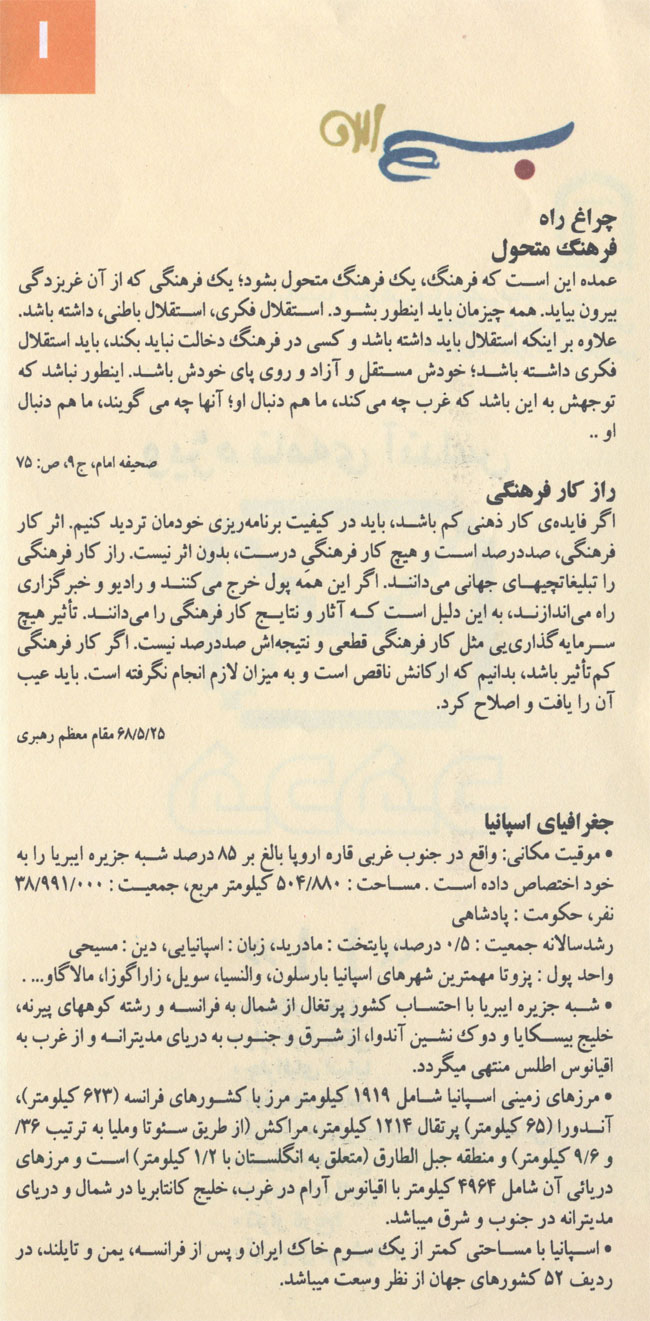 ۱
بسم الله
چراغ راه
فرهنگ متحول
عمده این است که فرهنگ، یک فرهنگ متحول بشود؛ یک فرهنگی که از آن غربزدگی
بیرون بیاید. همه چیزمان باید اینطور بشود. استقلال فکری، استقلال باطنی، داشته باشد.
علاوه بر اینکه استقلال باید داشته باشد و کسی در فرهنگ دخالت نباید بکند، باید استقلال
فکری داشته باشد؛ خودش مستقل و آزاد و روی پای خودش باشد. اینطور نباشد که
توجهش به این باشد که غرب چه می‌کند، ما هم دنبال او؛ آنها چه می گویند، ما هم دنبال
او ..
صحیفه امام، ج۹، ص: ۷۵
راز کار فرهنگی
اگر فایده‌ی کار ذهنی کم باشد، باید در کیفیت برنامه‌ریزی خودمان تردید کنیم. اثر کار
فرهنگی، صددرصد است و هیچ کار فرهنگیِ درست، بدون اثر نیست. راز کار فرهنگی
را تبلیغاتچیهای جهانی می‌دانند. اگر این همه پول خرج می‌کنند و رادیو و خبرگزاری
راه می‌اندازند، به این دلیل است که آثار و نتایج کار فرهنگی را می‌دانند. تأثیر هیچ
سرمایه‌گذاری‌یی مثل کار فرهنگی قطعی و نتیجه‌اش صددرصد نیست. اگر کار فرهنگی
کم‌تأثیر باشد، بدانیم که ارکانش ناقص است و به میزان لازم انجام نگرفته است. باید عیب
آن را یافت و اصلاح کرد.
۶۸/۵/۲۵ مقام معظم رهبری
جغرافیای اسپانیا
• موقیت مکانی: واقع در جنوب غربی قاره اروپا بالغ بر ۸۵ درصد شبه جزیره ایبریا را به
خود اختصاص داده است . مساحت : ۵۰۴/۸۸۰ کیلومتر مربع، جمعیت : ۳۸/۹۹۱/۰۰۰
نفر، حکومت : پادشاهی
رشدسالانه جمعیت : ۰/۵ درصد، پایتخت : مادرید، زبان : اسپانیایی، دین : مسیحی
واحد پول : پزوتا مهمترین شهرهای اسپانیا بارسلون، والنسیا، سویل، زاراگوزا، مالاگاو... .
• شبه جزیره ایبریا با احتساب کشور پرتغال از شمال به فرانسه و رشته کوههای پیرنه،
خلیج بیسکایا و دوک نشین آندوا، از شرق و جنوب به دریای مدیترانه و از غرب به
اقیانوس اطلس منتهی میگردد.
• مرزهای زمینی اسپانیا شامل ۱۹۱۹ کیلومتر مرز با کشورهای فرانسه (۶۲۳ کیلومتر)،
آندورا (۶۵ کیلومتر) پرتقال ۱۲۱۴ کیلومتر، مراکش (از طریق سئوتا وملیا به ترتیب ۳۶/
و ۹/۶ کیلومتر) و منطقه جبل الطارق (متعلق به انگلستان با ۱/۲ کیلومتر) است و مرزهای
دریائی آن شامل ۴۹۶۴ کیلومتر با اقیانوس آرام در غرب، خلیج کانتابریا در شمال و دریای
مدیترانه در جنوب و شرق میباشد.
• اسپانیا با مساحتی کمتر از یک سوم خاک ایران و پس از فرانسه، یمن و تایلند، در
ردیف ۵۲ کشورهای جهان از نظر وسعت میباشد.